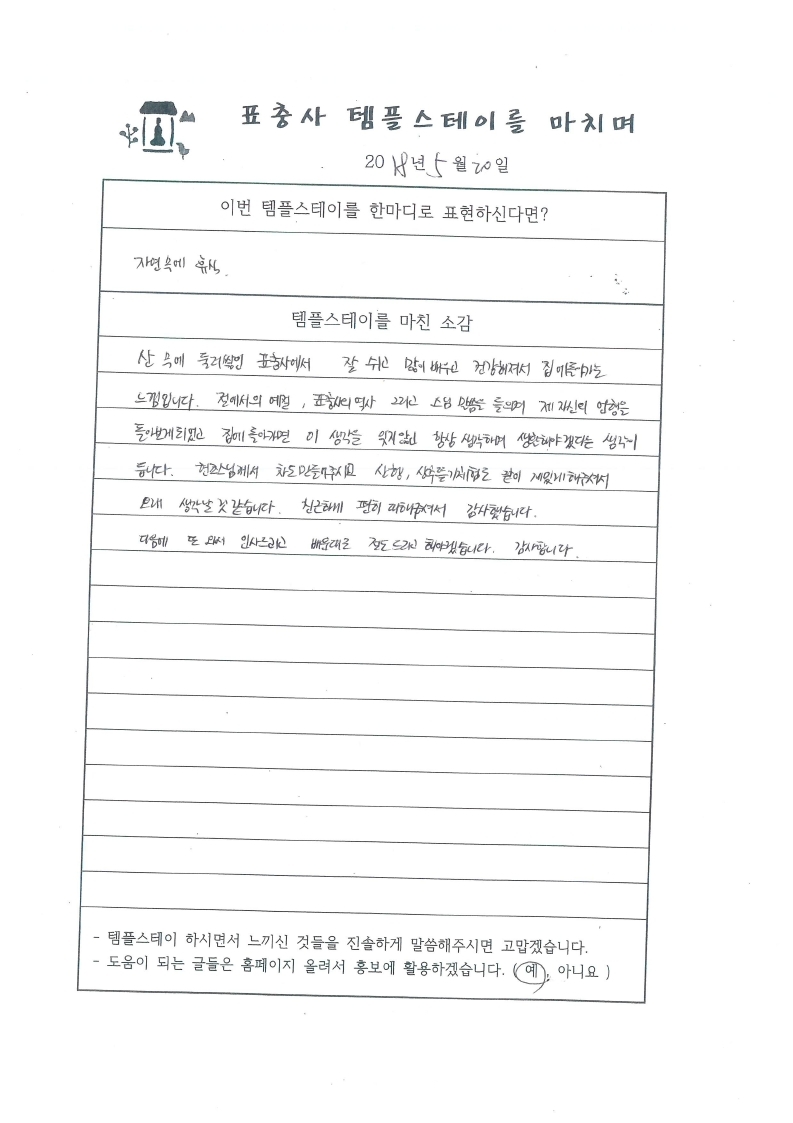 표충사 템플스테이를 마치며
2018년 5월 20일
이번 템플스테이를 한마디로 표현하신다면?
자연속에 휴식.
템플스테이를 마친 소감
산 속에 둘러쌓인 표충사에서 잘 쉬고 많이 배우고 건강해져서 집에
느낌입니다. 절에서의 예절, 표충사의 역사 그리고 스님 말씀을 들으며 제 자신의
돌아보게되었고 집에돌아가면 이 생각을 잊지않고 항상 생각하며 생활해야겠다는 생각이
듭니다. 스님께서 차도만들어주시고 산행, 같이 재밌게해주셔서
오래 생각날 것 같습니다. 친근하게 편히 대해주셔서 감사했습니다.
다음에 또 와서 인사드리고 배운대로 절도드리고 해야겠습니다. 감사합니다.
- 템플스테이 하시면서 느끼신 것들을 진솔하게 말씀해주시면 고맙겠습니다.
- 도움이 되는 글들은 홈페이지 올려서 홍보에 활용하겠습니다. ( 예, 아니요 )